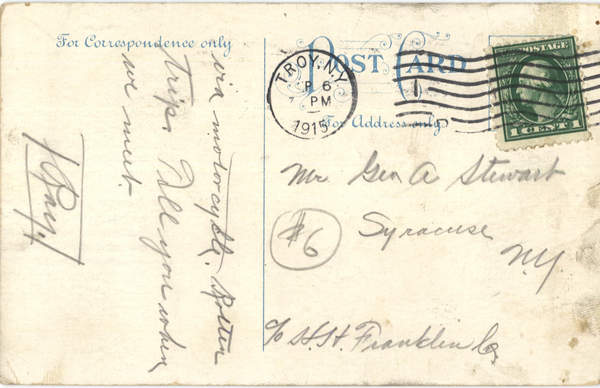 For Correspondence only
via motorcycle. Rotten
trip. Tell you when
we meet.
Ray
POST CARD
For Address only
TROY, N.Y.
6
PM
1915
POSTAGE
1 CENT 1
Mr Geo A Stewart
#6
Syracuse
N.Y.
c/o H.H. Franklin Co